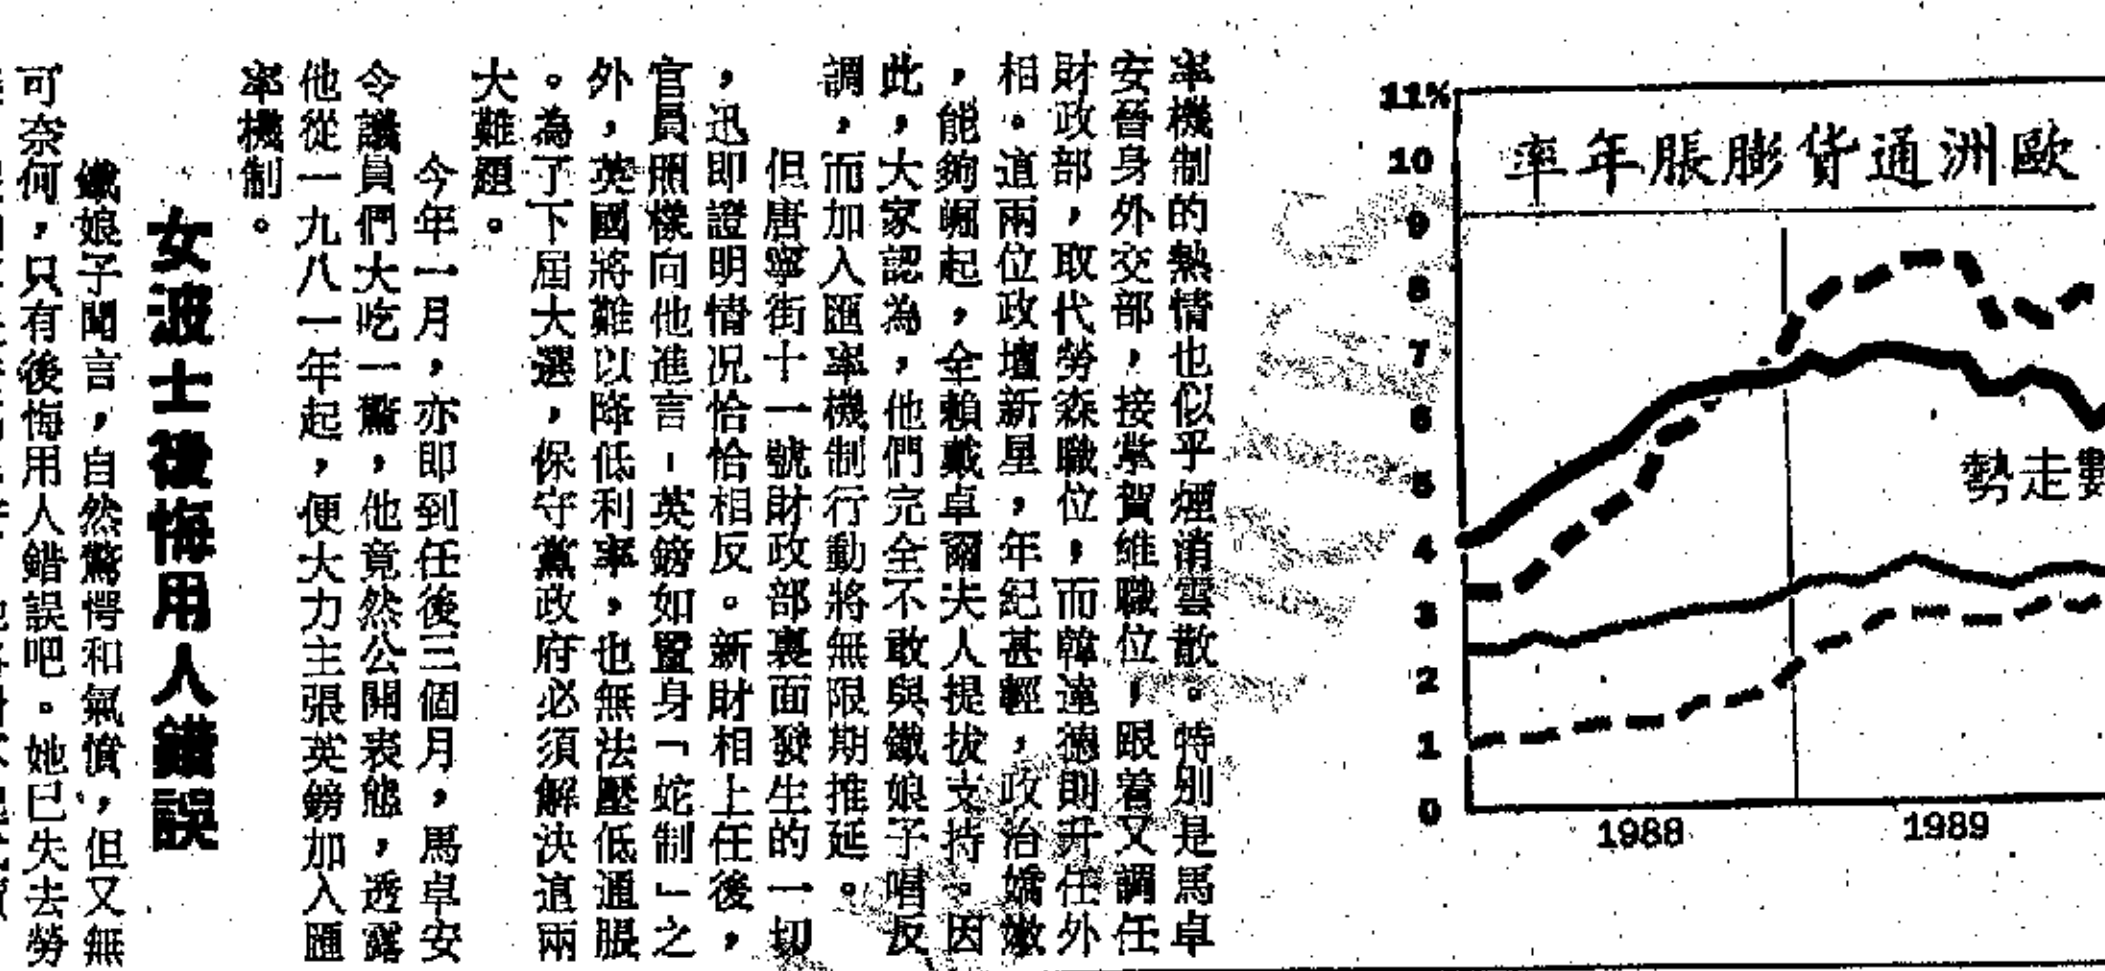 率機制的熱情也似乎煙消雲散。特別是馬卓
安晉身外交部，接掌賀維職位，跟着又調任
財政部，取代勞森職位，而韓達德則升任外
相。這兩位政壇新星，年紀甚輕，政治嬌嫩
，能夠崛起，全賴戴卓爾夫人提拔支持。因
此，大家認為，他們完全不敢與鐵娘子唱反
調，而加入匯率機制行動將無限期推延。
但唐寧街十一號財政部裏面發生的一切
，迅即證明情況恰恰相反。新財相上任後，
官員照樣向他進言－英鎊如置身「蛇制」之
外，英國將難以降低利率，也無法壓低通脹
。為了下屆大選，保守黨政府必須解決這兩
大難題。
今年一月，亦即到任後三個月，馬卓安
令議員們大吃一驚，他竟然公開表態，透露
他從一九八一年起，便大力主張英鎊加入匯
率機制。
女波士後悔用人錯誤
鐵娘子聞言，自然驚愕和氣憤，但又無
可奈何，只有後悔用人錯誤吧。她已失去勞
歐洲通貨膨脹年率
11%
10
9
8
7
6
5
4
3
2
1
0
數走勢
1988
1989